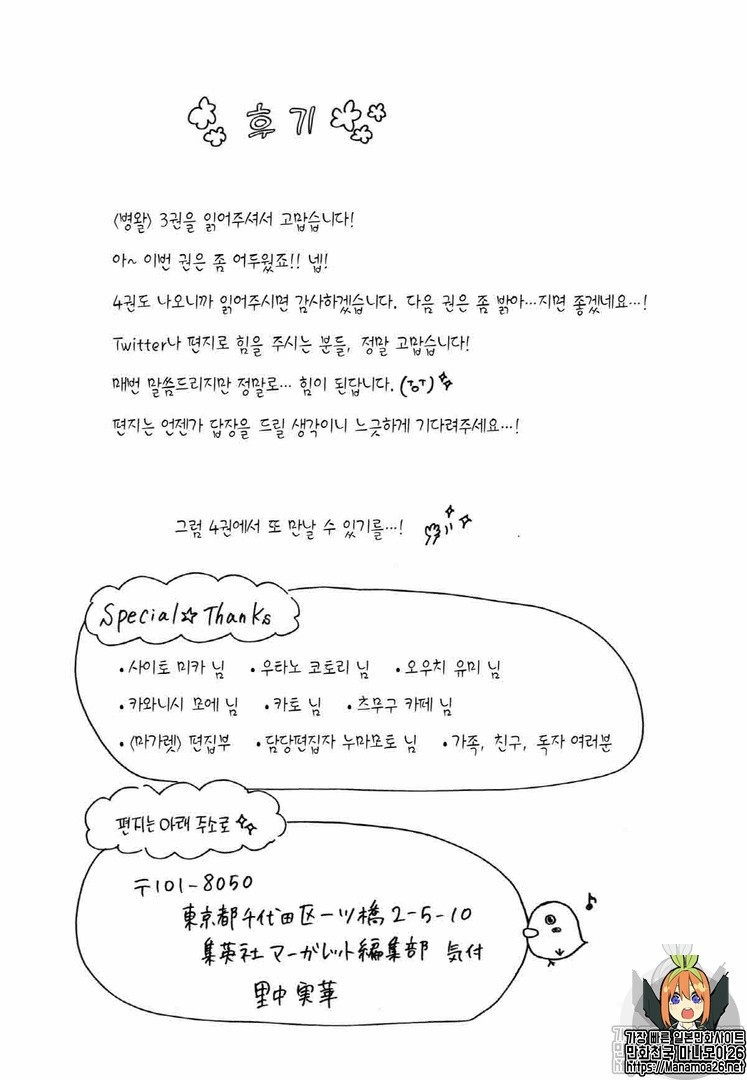 후기
〈병왈〉 3권을 읽어주셔서 고맙습니다!
아~ 이번 권은 좀 어두웠죠!! 넵!
4권도 나오니까 읽어주시면 감사하겠습니다. 다음 권은 좀 밝아…지면 좋겠네요…!
Twitter나 편지로 힘을 주시는 분들, 정말 고맙습니다!
매번 말씀드리지만 정말로… 힘이 된답니다.
편지는 언젠가 답장을 드릴 생각이니 느긋하게 기다려주세요…!
그럼 4권에서 또 만날 수 있기를…!
Special☆Thanks
•사이토 미카 님 •우타노 코토리 님 •오우치 유미 님
•카와니시 모에 님 •카토 님 •츠무구 카페 님
•〈마가렛〉 편집부 •담당편집자 누마모토 님 •가족, 친구, 독자 여러분
편지는 아래 주소로
〒101-8050
東京都千代田区一ツ橋2-5-10
集英社 マーガレット編集部 気付
里中実華
가장 빠른 일본만화사이트
만화천국 마나모아26
https://Manamoa26.net